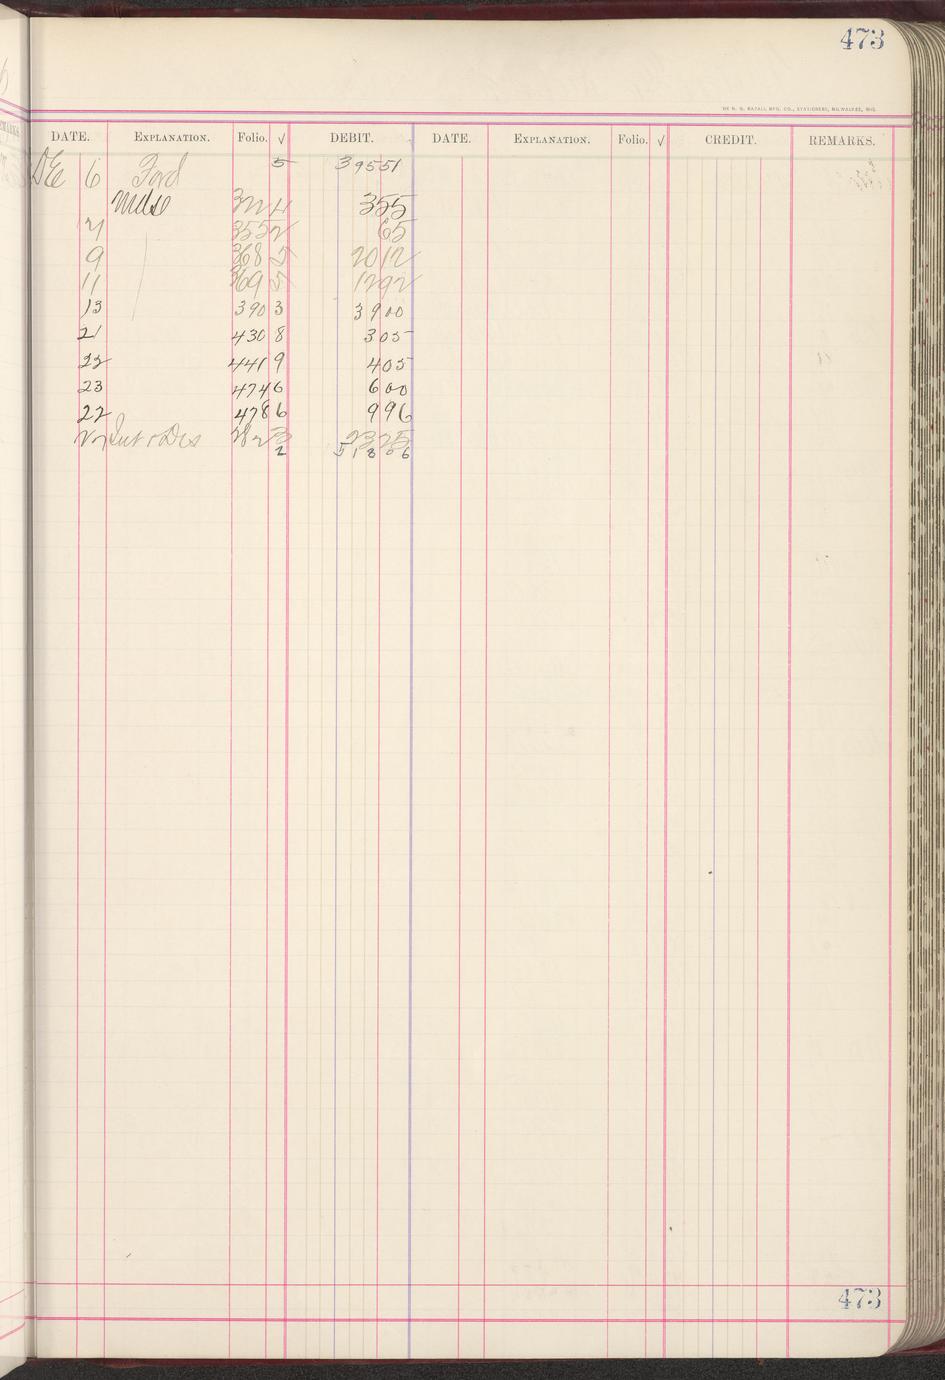 473
THE H. G. RAZALL MFG. CO., STATIONERS, MILWAUKEE, WIS.
DATE. EXPLANATION. Folio. √ DEBIT. DATE. EXPLANATION. Folio. √ CREDIT. REMARKS.
DEc 6 Ford 5 39551
Mdse 322 4 355
7 355 2 65
9 368 5 2012
11 369 5 1292
13 390 3 3900
21 430 8 305
22 441 9 405
23 474 6 600
27 478 6 996
27 Int & Dis 282 3 2325
2 51806
473